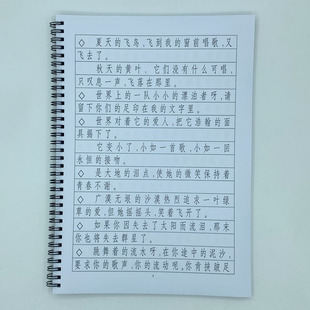 ◇ 夏天的飞鸟,飞到我的窗前唱歌,又
飞去了。
秋天的黄叶,它们没有什么可唱,
只叹息一声,飞落在那里。
◇ 世界上的一队小小的漂泊者呀,请
留下你们的足印在我的文字里。
◇ 世界对着它的爱人,把它浩瀚的面
具揭下了。
它变小了,小如一首歌,小如一回
永恒的接吻。
◇ 是大地的泪点,使她的微笑保持着
青春不谢。
◇ 广漠无垠的沙漠热烈追求一叶绿
草的爱,但她摇摇头,笑着飞开了。
◇ 如果你因失去了太阳而流泪,那末
你也将失去群星了。
◇ 跳舞着的流水呀,在你途中的泥沙,
要求你的歌声,你的流动呢。你肯挟跛足